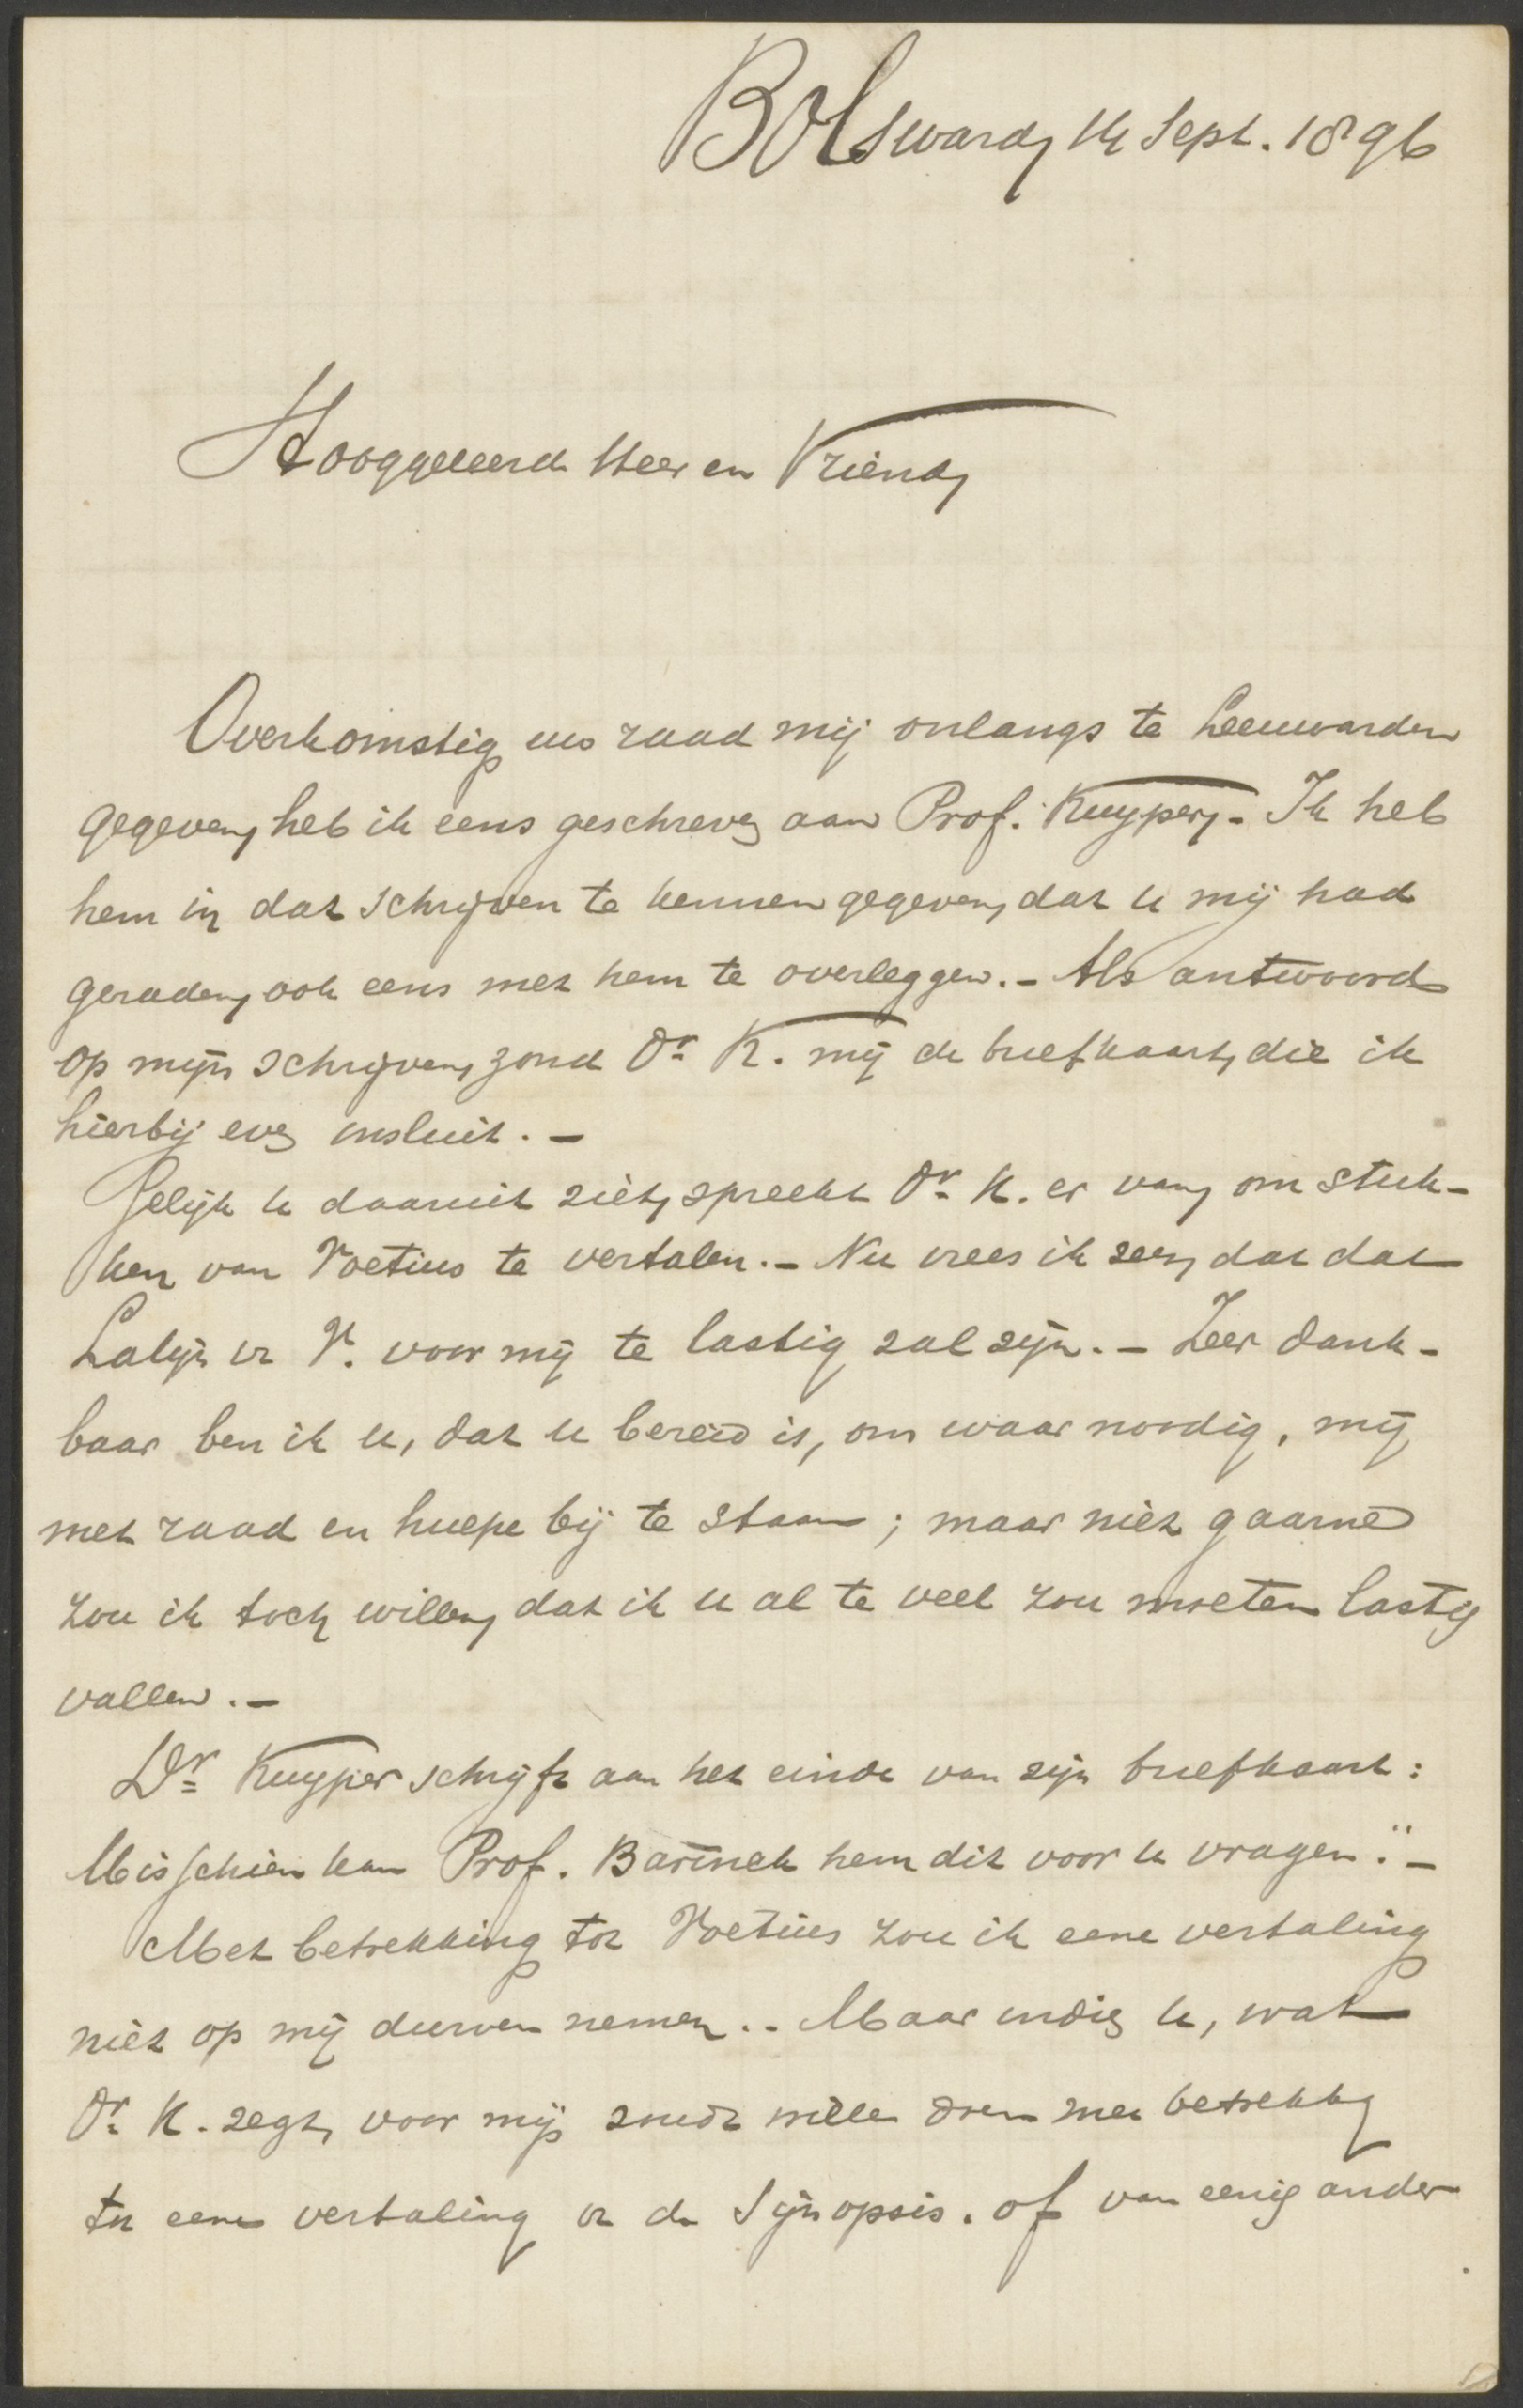 Bolsward, 14 Sept. 1896
Hooggeleerde Heer en Vriend,
Overkomstig uws raad mij onlangs te Leeuwarden
gegeven, heb ik eens geschreven aan Prof. Kuyper,- Ik heb
hem in dat schrijven te kennen gegeven, dat u mij had
geraden, ook eens met hem te overleggen.- Als antwoord
op mijn schrijven, zond Dr. K. mij de briefkaart, die ik
hierbij even insluit.-
Gelijk u daaruit ziet, spreekt Dr. K. er van, om stuk-
ken van Voetius te vertalen.- Nu vrees ik zeer, dat dat
Latijn v V. voor mij te lastig zal zijn.- Zeer dank-
baar ben ik u, dat u bereid is, om waar noodig, mij,
met raad en hulpe bij te staan; maar niet gaarne
zou ik toch willen, dat ik u al te veel zou moeten lastig
vallen.-
Dr. Kuyper schrijft aan het einde van zijn briefkaart:
Misschien kan Prof. Bavinck hem dit voor u vragen."-
Met betrekking tot Voetius zou ik eene vertaling
niet op mij durven nemen.- Maar indien u, wat
Dr. K. zegt, voor mij zoudt willen doen met betrekking
tot eene vertaling v de Synopsis, of van eenig ander